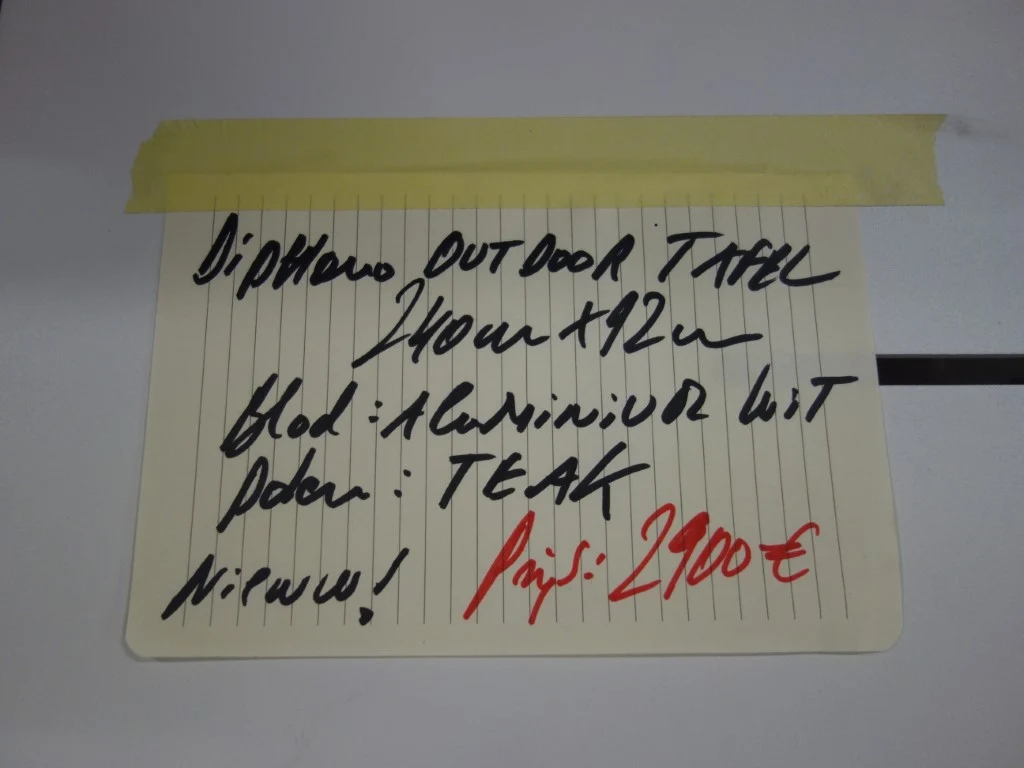 DipHano OUTDOOR TAFEL
240cm x 92cm
Blad : ALUMINIUM WIT
Poten : TEAK
Nieuw! Prijs: 2900 €